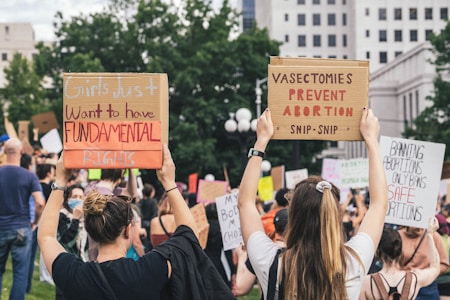 Girls Just
Want to have
FUNDAMENTAL
RIGHTS
VASECTOMIES
PREVENT
ABORTION
SNIP-SNIP
BANNING
ABORTIONS
ONLY BANS
SAFE
ABORTIONS
MY